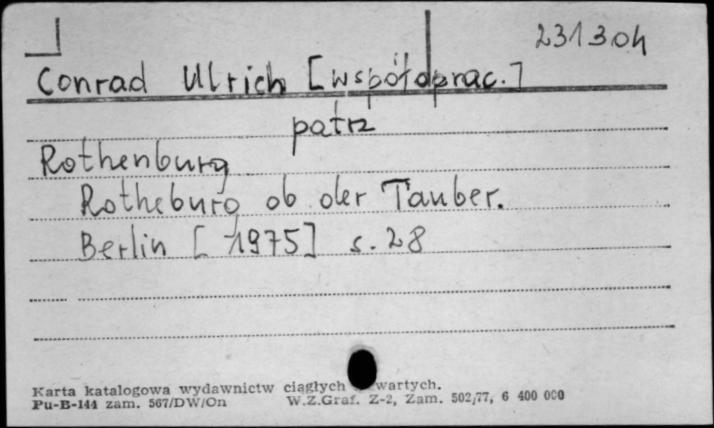 231304
Conrad Ulrich [współoprac.]
patrz
Rothenburg
Rotheburg ob der Tauber.
Berlin [1975] s. 28
Karta katalogowa wydawnictw ciągłych wartych.
Pu-B-144 zam. 567/DW/On W.Z.Graf. Z-2, Zam. 502/77, 6 400 000